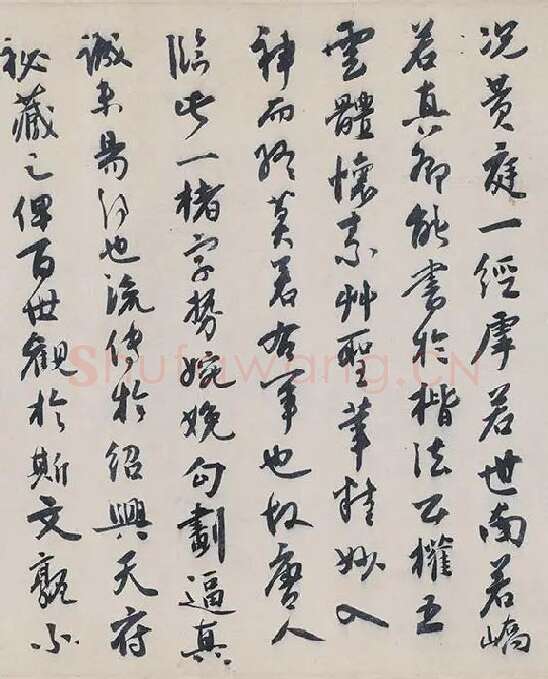 况黄庭一經虖若世南若嶠
若真卿能書於楷法公權五
雲體懷素艸聖筆精妙入
神而終莫若右軍也故唐人
臨此一楮字勢婉娩勾劃逼真
誠未易得也流傳於紹興天府
秘藏之俾百世觀於斯文亂不
Shufawang.CN